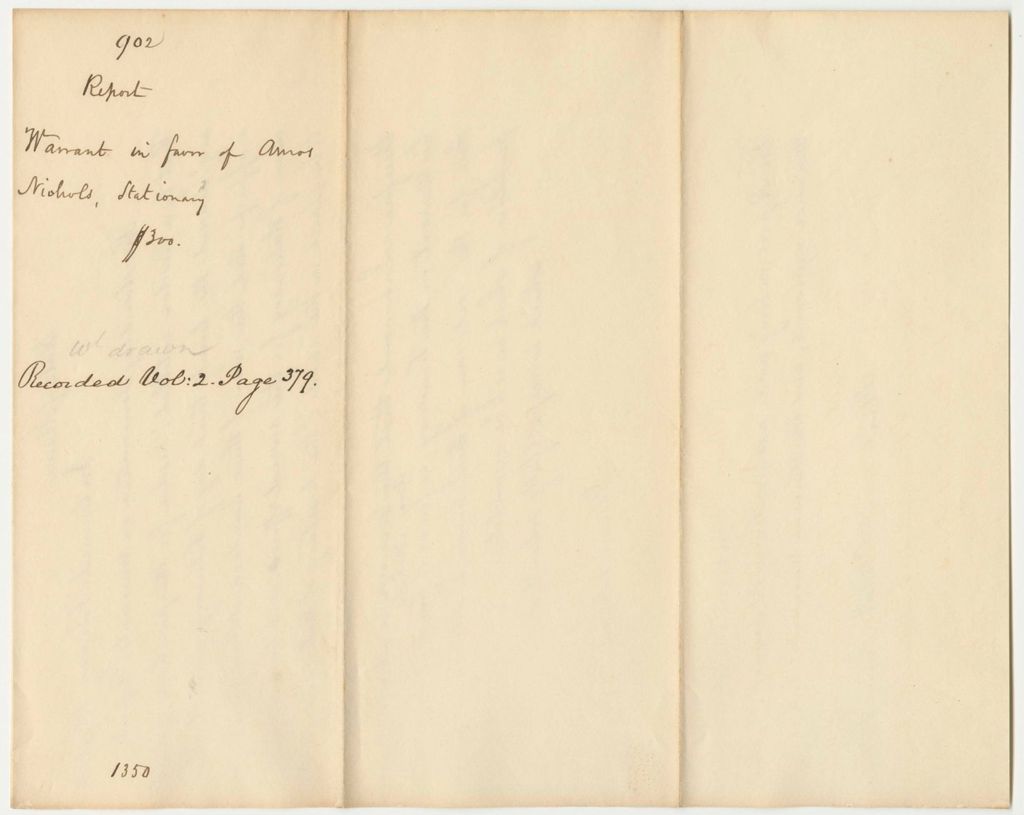 902
Report
Warrant in favor of Amos
Nichols, Stationary
$300.
Wt drawn
Recorded Vol: 2. Page 379.
1350